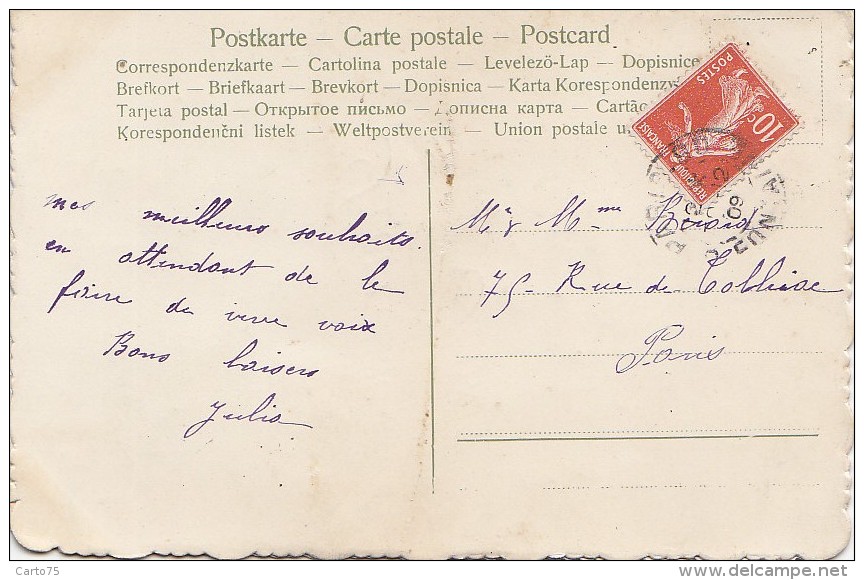 Postkarte — Carte postale — Postcard
Correspondenzkarte — Cartolina postale — Levelezö-Lap — Dopisnice
Brefkort — Briefkaart — Brevkort — Dopisnica — Karta Korespondenz
Tarjeta postal — Открытое письмо — Дописна карта — Cartão
Korespondenčni listek — Weltpostverein — Union postale u
POSTES
10c
REPUBLIQUE FRANÇAISE
mes meilleurs souhaits.
en attendant de le
faire de vive voix
Bons baisers
Julia
Mr & Mme
75 Rue de Tolbiac
Paris
Carto75
delcampe.net